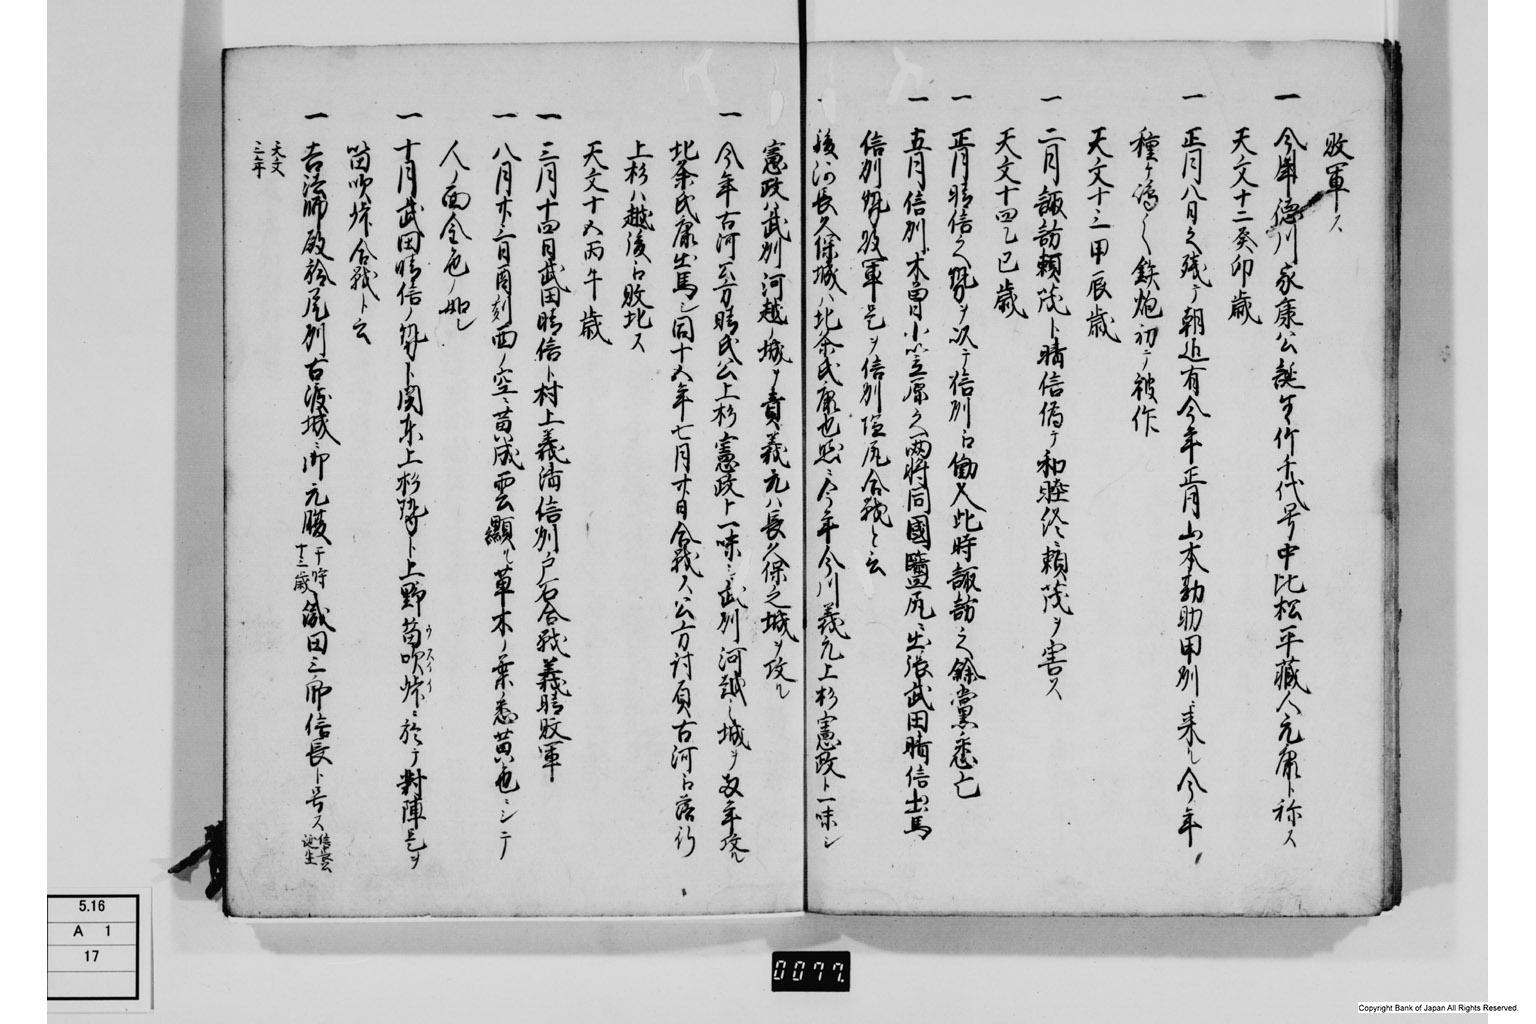 敗軍ス
一 今年徳川家康公誕生竹千代号中比松平藏人元康ト称ス
天文十二癸卯歳
一 正月八日之残テ朝近有今年正月山本勘助甲州ニ来ル今年
種ケ嶋ニ鉄炮初テ被作
天文十三甲辰歳
一 二月諏訪頼茂ト晴信偽テ和睦終ニ頼茂ヲ害ス
天文十四乙巳歳
一 正月晴信之勢ヲ以テ信州江働入此時諏訪之餘黨悉亡
一 五月信州木曽小笠原之両将同國鹽尻ニ出張武田晴信出馬
信州勢敗軍是ヲ信州塩尻合戦と云
後河長久保城ハ北条氏康也然ニ今年今川義元上杉憲政ト一味シ
憲政ハ武州河越ノ城ヲ責義元ハ長久保之城ヲ攻ル
一 今年古河公方晴氏公上杉憲政ト一味シ武州河越之城ヲ数年攻ル
北条氏康出馬シ同十五年七月廿日合戦ス公方討負古河江落行
上杉ハ越後江敗北ス
天文十五丙午歳
一 三月十四日武田晴信ト村上義清信州戸石合戦義晴敗軍
一 八月廿三日酉刻西ノ空ニ黄成雲顯ル草木ノ葉悉黄色ニシテ
人ノ面金色ノ如シ
一 十月武田晴信ノ勢ト関東上杉勢ト上野笛吹峠ニ於テ對陣是ヲ
ウスイ
笛吹峠合戦ト云
一 吉法師殿於尾州古渡城ニ御元服于時十三歳織田三郎信長ト号ス信長公誕生
天文
三年
5.16
A 1
17
0077.
Copyright Bank of Japan All Rights Reserved.